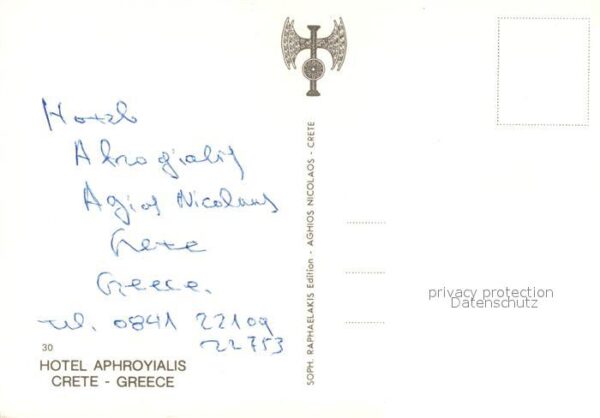 Hotel
Akrogialis
Agios Nicolaus
Crete
Greece.
tel. 0841 22109
22753
30
HOTEL APHROYIALIS
CRETE - GREECE
SOPH. RAPHAELAKIS Edition - AGHIOS NICOLAOS - CRETE
privacy protection
Datenschutz